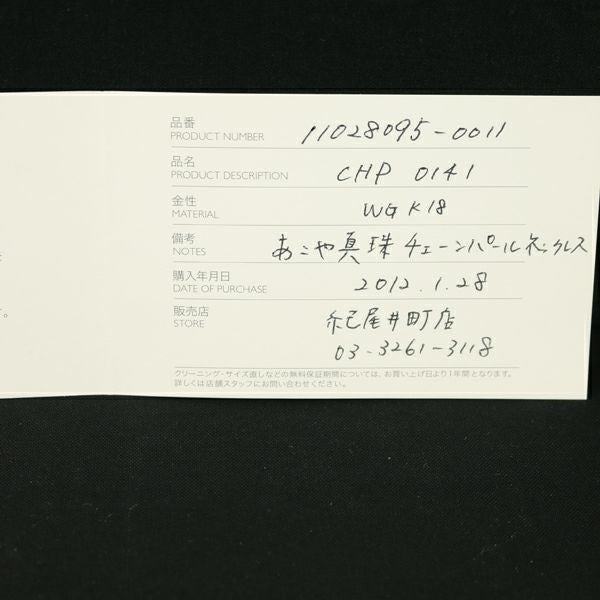 品番
PRODUCT NUMBER 11028095-0011
品名
PRODUCT DESCRIPTION CHP 0141
金性
MATERIAL WG K18
備考
NOTES あこや真珠チェーンパールネックレス
購入年月日
DATE OF PURCHASE 2012.1.28
販売店
STORE 紀尾井町店
03-3261-3118
クリーニング・サイズ直しなどの無料保証期間については、お買い上げ日より1年間となります。
詳しくは店舗スタッフにお問い合わせください。
す。